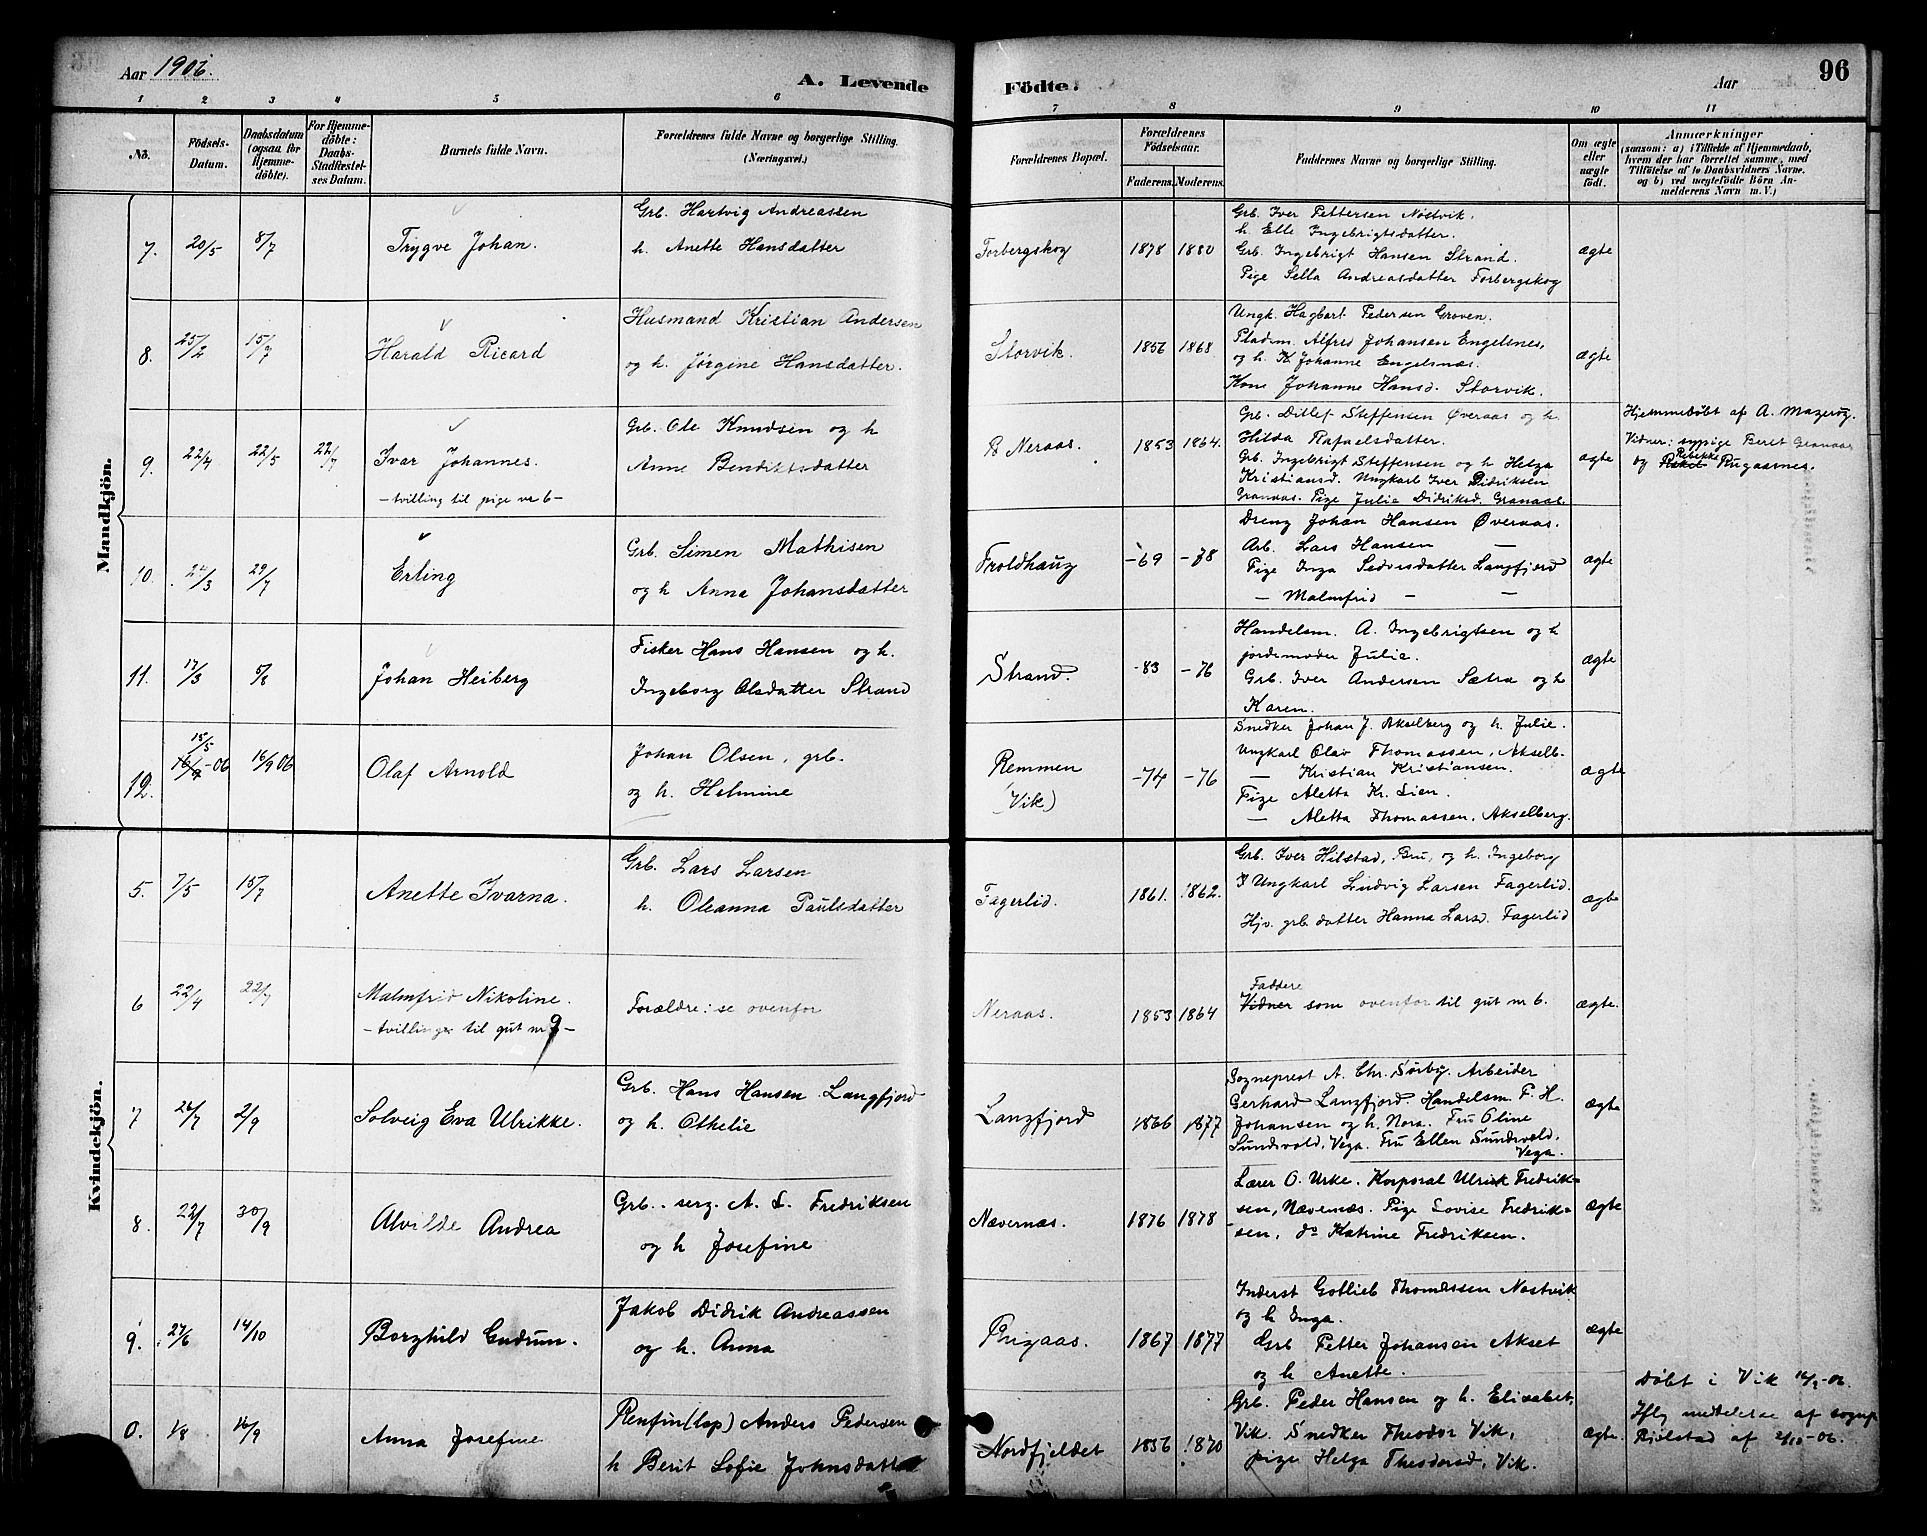 Aar 1906.
A. Levende
Födte.
Aar
96
1 2 3 4 5 6 7 8 9 10 11
No.
Födsels-
Datum.
Daabsdatum
(ogsaa for
Hjemme-
döbte).
For Hjemme-
döbte:
Daabs-
Stadfæstel-
ses Datum.
Barnets fulde Navn.
Forældrenes fulde Navne og borgerlige Stilling.
(Næringsvei.)
Forældrenes Bopæl.
Forældrenes
Födselsaar.
Faderens. Moderens.
Faddernes Navne og borgerlige Stilling.
Om ægte
eller
uægte
födt.
Anmærkninger
(saasom: a) i Tilfælde af Hjemmedaab,
hvem der har forrettet samme, med
Tilföielse af to Daabsvidners Navne,
og b) ved uægtefödte Börn An-
melderens Navn m. V.)
Mandkjön.
7. 20/5 8/7 Trygve Johan.
Grb. Hartvig Andreassen
h. Anette Hansdatter
Forbergskog 1878 1880
Grb. Iver Pettersen Nöstvik.
h. Elle Ingebrigtsdatter.
Grb. Ingebrigt Hansen Strand.
Pige Sella Andreasdatter Forbergskog
ægte
8. 25/2 15/7 Harald Ricard
Husmand Kristian Andersen
og h. Jørgine Hansdatter.
Storvik. 1856 1868
Ungk. Hagbart Pedersen Groven.
Pladsm. Alfred Johansen Engelsnes,
og h. K Johanne Engelsnæs.
Kone Johanne Hansd. Storvik.
ægte
9. 22/4 22/5 22/7 Ivar Johannes.
- tvilling til pige nr 6 -
Grb. Ole Knudsen og h
Anne Bendiktsdatter
Neraas. 1853 1864.
Grb. Ditlef Steffensen Øveraas og h.
Hilda Rafaelsdatter.
Grb. Ingebrigt Steffensen og h Helga
Kristiansd. Ungkarl Iver Didriksen
Granaas. Pige Julie Didriksd. Granaas.
ægte
Hjemmedöbt af A. Mazerög.
Vidner: sypige Beret Granaas
og Rebekka Rugaasnes.
10. 24/3 29/7 Erling
Grb. Simen Mathisen
og h Anna Johansdatter
Troldhaug -69 -78
Dreng Johan Hansen Øveraas.
Arb. Lars Hansen —
Pige Inga Sedvisdatter Langfjord
— Malmfrid — —
ægte
11. 17/3 5/8 Johan Heiberg
Fisker Hans Hansen og h.
Ingeborg Olsdatter Strand
Strand. -83 -76
Handelsm. A. Ingebrigtsen og h
jordemoder Julie.
Grb. Iver Andersen Sætra og h
Karen.
ægte
12. 15/5 16/9-06 16/9 06 Olaf Arnold
Johan Olsen, grb.
og h. Helmine
Remmen
(Vik) -74 -76
Snedker Johan J. Akselberg og h. Julie.
Ungkarl Olav Thomassen, Akselb-
— Kristian Kristiansen.
Pige Aletta Kr. Lien.
— Aletta Thomassen, Akselberg.
ægte
Kvindekjön.
5. 7/5 15/7 Anette Ivarna.
Grb. Lars Larsen
h. Oleanna Paulsdatter
Fagerlid. 1861. 1862.
Grb. Iver Hilstad, Bru, og h. Ingeborg
Ungkarl Ludvig Larsen Fagerlid.
Hjv. grb. datter Hanna Larsd. Fagerlid
ægte
6 22/4 22/7 Malmfrid Nikoline.
- tvilling til gut nr 9 -
Forældre: se ovenfor
Neraas. 1853 1864
Faddere
Vidner som ovenfor til gut nr 6.
ægte.
7 24/7 2/9 Solveig Eva Ulrikke.
Grb. Hans Hansen Langfjord
og h. Othelie
Langfjord 1866 1877
Sogneprest A. Chr. Sörby. Arbeider
Gerhard Langfjord. Handelsm. P. H.
Johansen og h. Nora. Fru Oline
Sundsvold, Vega. Fru Ellen Sundsvold.
Vega.
ægte
8. 22/7 30/9 Alvilde Andrea
Grb. serg. A. L. Fredriksen
og h Josefine
Nævernæs. 1876 1878
Lærer O. Urke. Korporal Ulrick Fredrik-
sen, Nævernæs. Pige Lovise Fredrik-
sen, do Katrine Fredriksen.
ægte
9. 27/6 14/10 Borghild Gudrun.
Jakob Didrik Andreassen
og h. Anna
Rugaas. 1867 1877
Inderst Gotlieb Thomassen Nostvik
og h Inga.
Grb Petter Johansen Akset
og h Anette.
ægte
0. 1/8 16/9 Anna Josefine
Renfin (lap) Anders Pedersen
h Berit Sofie Johnsdatter
Nordfjeldet 1856 1870
Grb. Peder Hansen og h. Elisabet,
Vik. Snedker Theodor Vik,
pige Helga Theodorsd, Vik.
ægte.
Döbt i Vik 16/9-06.
Iflg meddelelse af sognep
Kjelstad af 2/10-06.